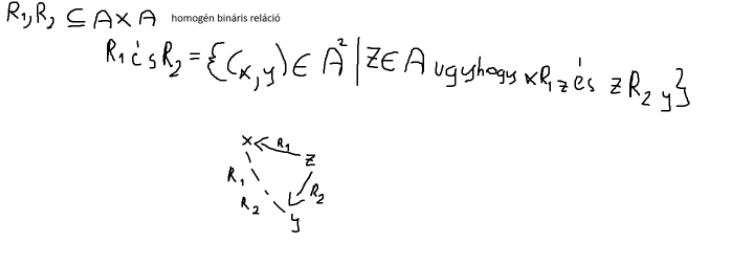 R₁,R₂ ⊆ A×A homogén bináris reláció
R₁ és R₂ = {(x,y) ∈ A² | Z∈A ugyhogy xR₁z és zR₂y}
x R₁
z
R₁
R₂ R₂
y